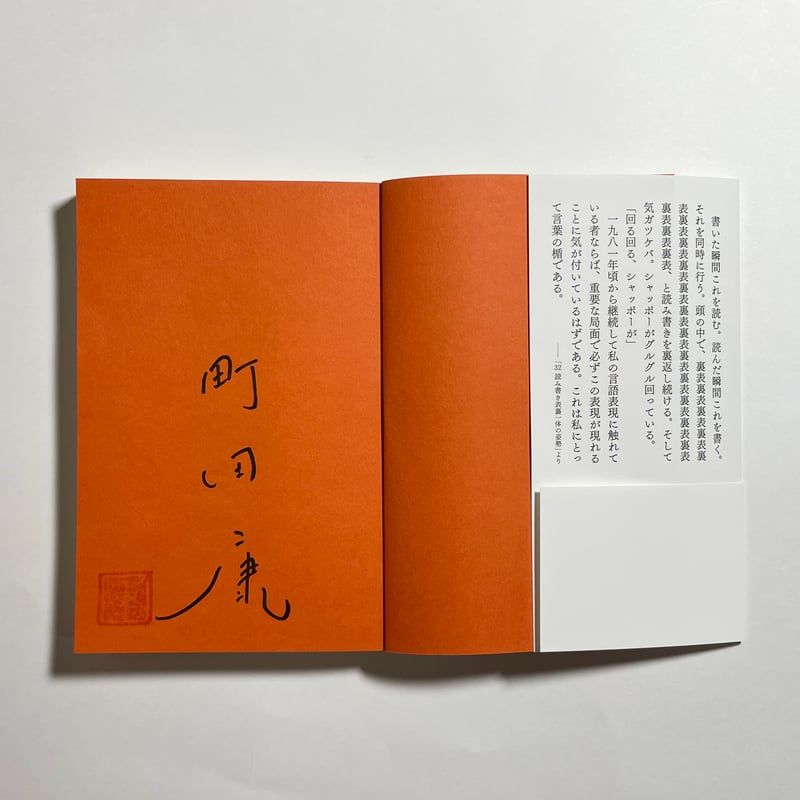 書いた瞬間これを読む。読んだ瞬間これを書く。
それを同時に行う。頭の中で、裏表裏表裏表裏表裏
表裏表裏表裏表裏表裏表裏表裏表裏表裏表裏表裏表
裏表裏表裏表、と読み書きを裏返し続ける。そして
気ガツケバ。シャッポーがグルグル回っている。
「回る回る、シャッポーが」
一九八一年頃から継続して私の言語表現に触れて
いる者ならば、重要な局面で必ずこの表現が現れる
ことに気が付いているはずである。これは私にとっ
て言葉の楯である。
──「32 読み書き表裏一体の姿勢」より
町田康